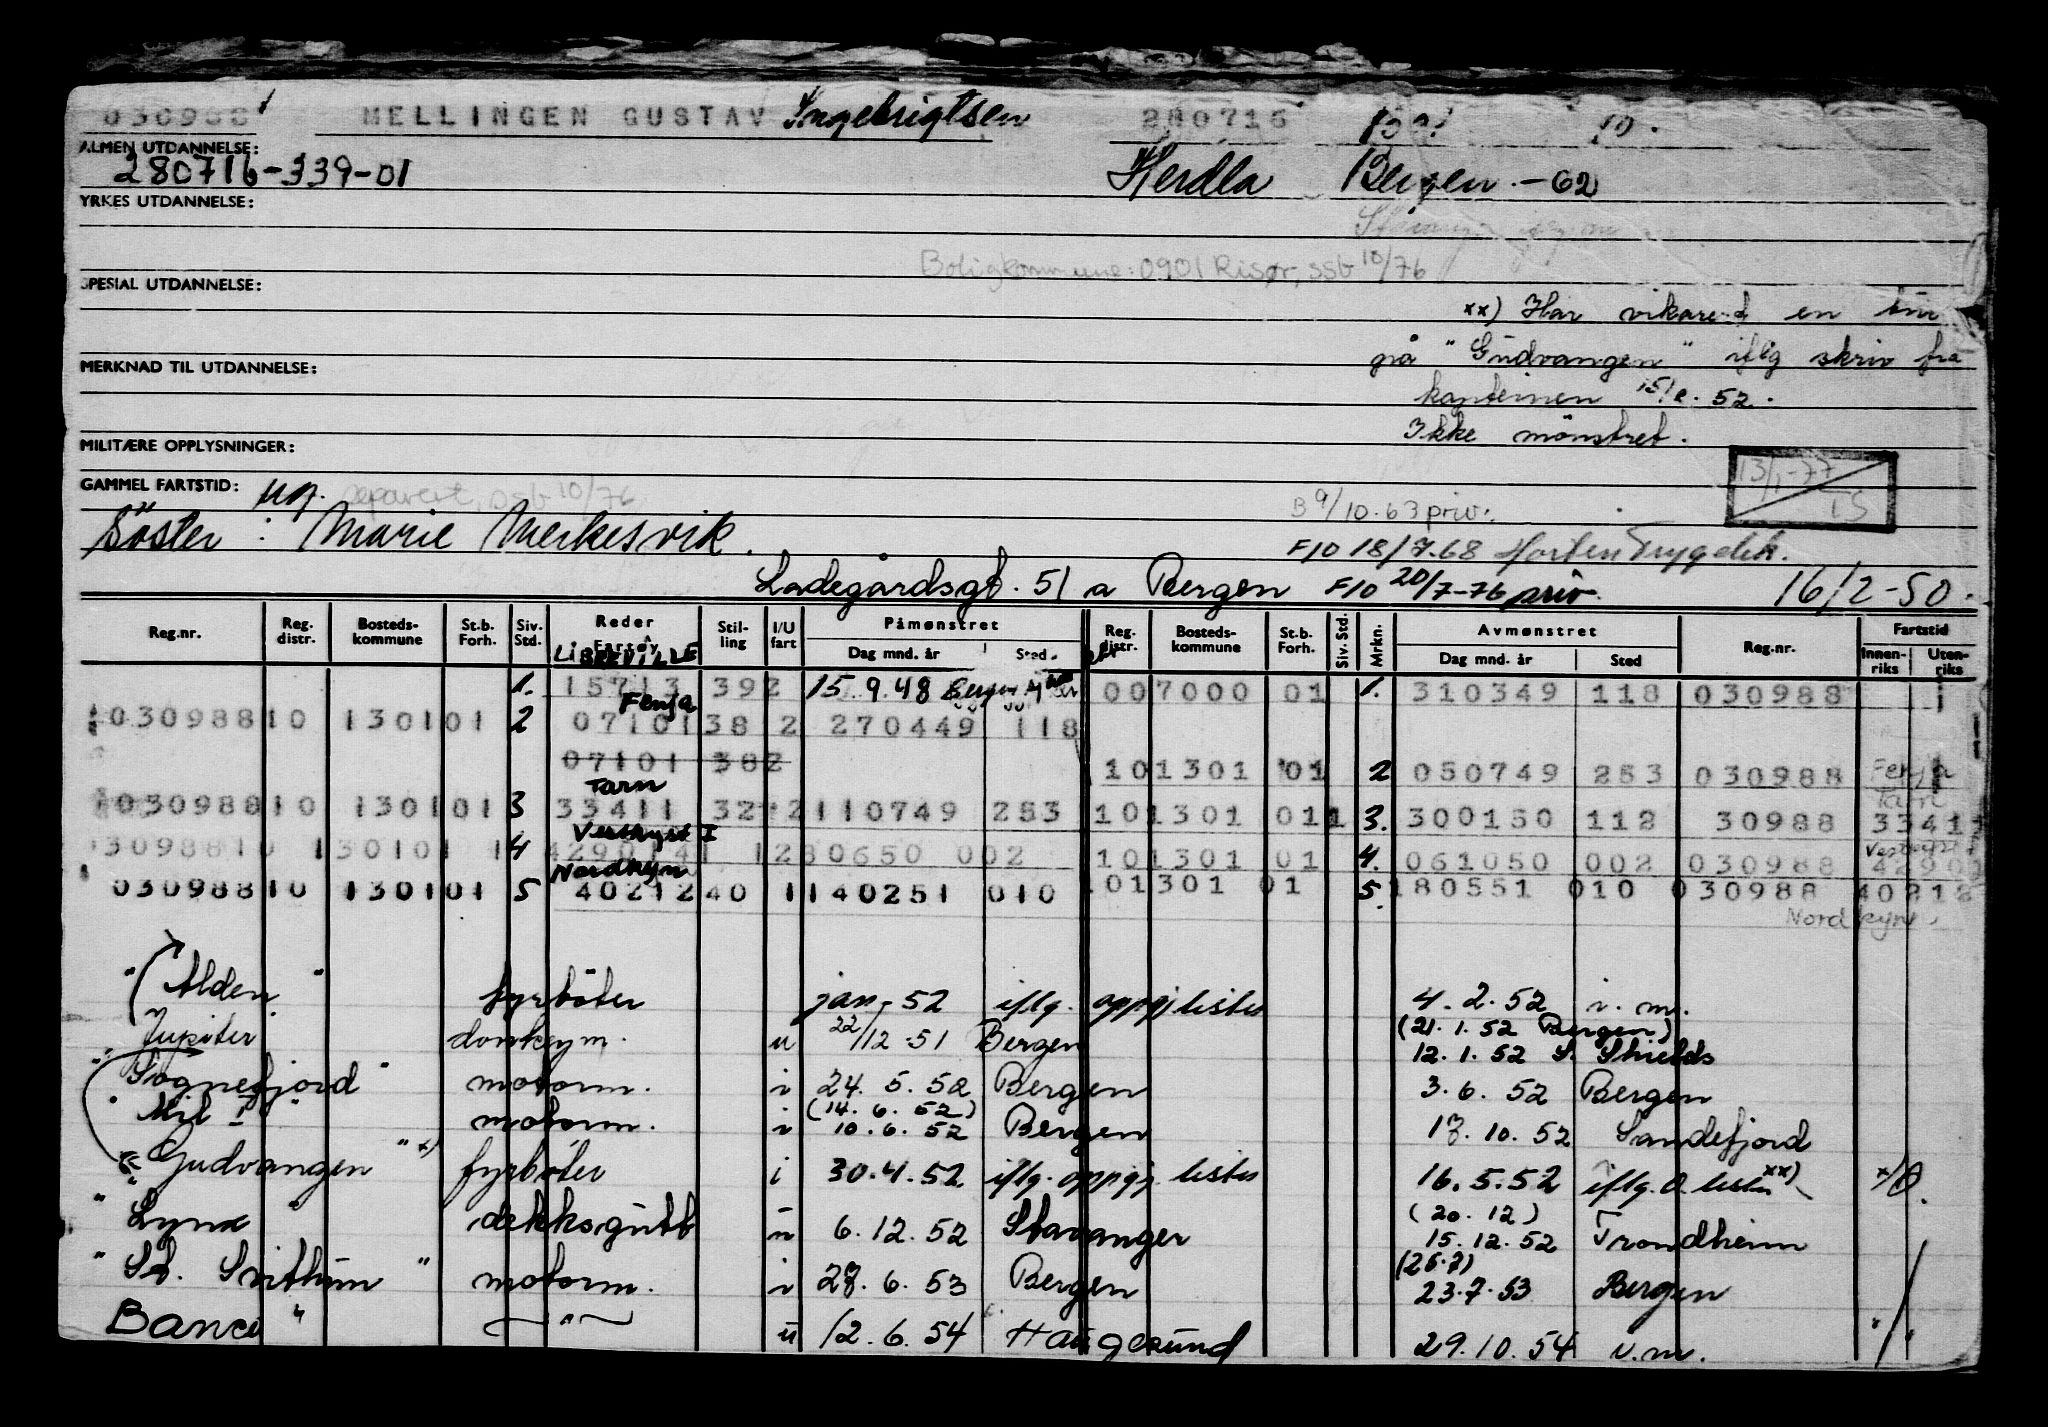 030988 MELLINGEN GUSTAV Ingebrigtsen 280716
ALMEN UTDANNELSE:
280716-339-01 Herdla Bergen -62
YRKES UTDANNELSE:
Boligkommune: 0901 Risør, ssb 10/76
SPESIAL UTDANNELSE:
xx) Har vikariert en tur
på "Gudvangen" iflg skriv fra
MERKNAD TIL UTDANNELSE:
kapteinen 52.
Ikke mönstret.
MILITÆRE OPPLYSNINGER:
13/1-77
TS
GAMMEL FARTSTID: ug. separert, ssb 10/76
B 9/10.63 priv.
Söster: Marie Merkesvik.
F10 18/7.68 Horten Trygdek.
Ladegårdsgt. 51 a Bergen F10 20/7-76 priv. 16/2-50.
Reg.nr. Reg. distr. Bosteds-kommune St.b. Forh. Siv. Std. Reder Fartøy Stil-ling I/U fart Påmønstret Reg. distr. Bosteds-kommune St.b. Forh. Siv. Std. Mrkn. Avmønstret Reg.nr. Fartstid
Dag mnd. år Sted Dag mnd. år Sted Innen-riks Uten-riks
LIBREVILLE
1. 15713 392 15.9.48 007000 01 1. 310349 118 030988
Fenja
030988 10 1301 01 2 07101 38 2 270449 118
07101 382 10 1301 01 2 050749 253 030988 Fenja
Tarn Tarn
030988 10 1301 01 3 33411 32 2 110749 253 10 1301 01 1 3. 300150 112 30988 33411
Vestkyst I
3098810 130101 4 42901 41 1 280650 002 10 1301 01 4. 061050 002 030988
Nordkyn
030988 10 1301 01 5 40212 40 1 140251 010 101301 01 5. 180551 010 030988 40212
Nordkyn
"Alden" fyrböter jan-52 iflg. oppgj lister 4.2.52 i.m.
(21.1.52 Bergen)
Jupiter donkeym. u 22/12.51 Bergen 12.1.52 S. Shields
"Sognefjord" motorm. i 24.5.52 Bergen 3.6.52 Bergen
(14.6.52)
"Mil I" motorm. i 10.6.52 Bergen 13.10.52 Sandefjord
"Gudvangen" x) fyrböter i 30.4.52 iflg. oppgj. lister 16.5.52 iflg. O. lister xx) x/0.
(20.12)
"Lynx" dekksgutt u 6.12.52 Stavanger 15.12.52 Trondheim
(25.7)
"St. Svithun" motorm. i 28.6.53 Bergen 23.7.53 Bergen
Banco " — " — u 12.6.54 Haugesund 29.10.54 u.m.